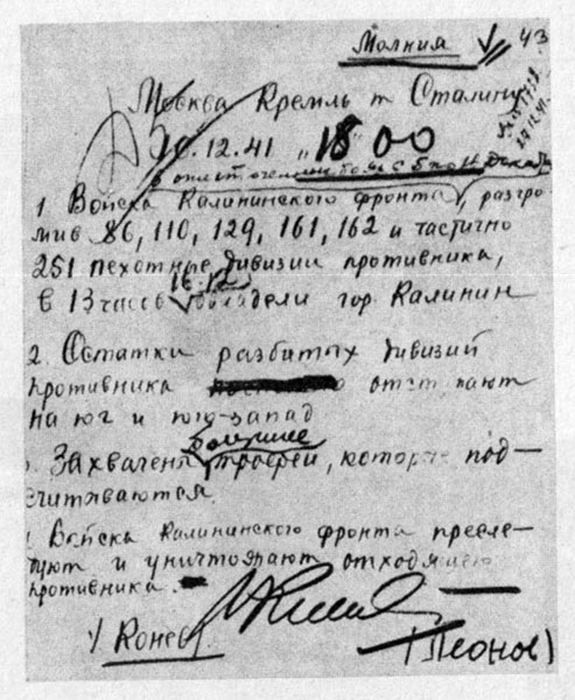 Молния 43
Москва Кремль т Сталину
12.41 "18" 00
1 Войска Калининского фронта, разгро
мив 86, 110, 129, 161, 162 и частично
251 пехотные дивизии противника,
16.12
в 13 часов овладели гор. Калинин
2. Остатки разбитых дивизий
противника отступают
на юг и юго-запад
большие
Захвачены трофеи, которые под—
считываются
Войска Калининского фронта пресле—
дуют и уничтожают отходящего
противника.
Конев
(Леонов)